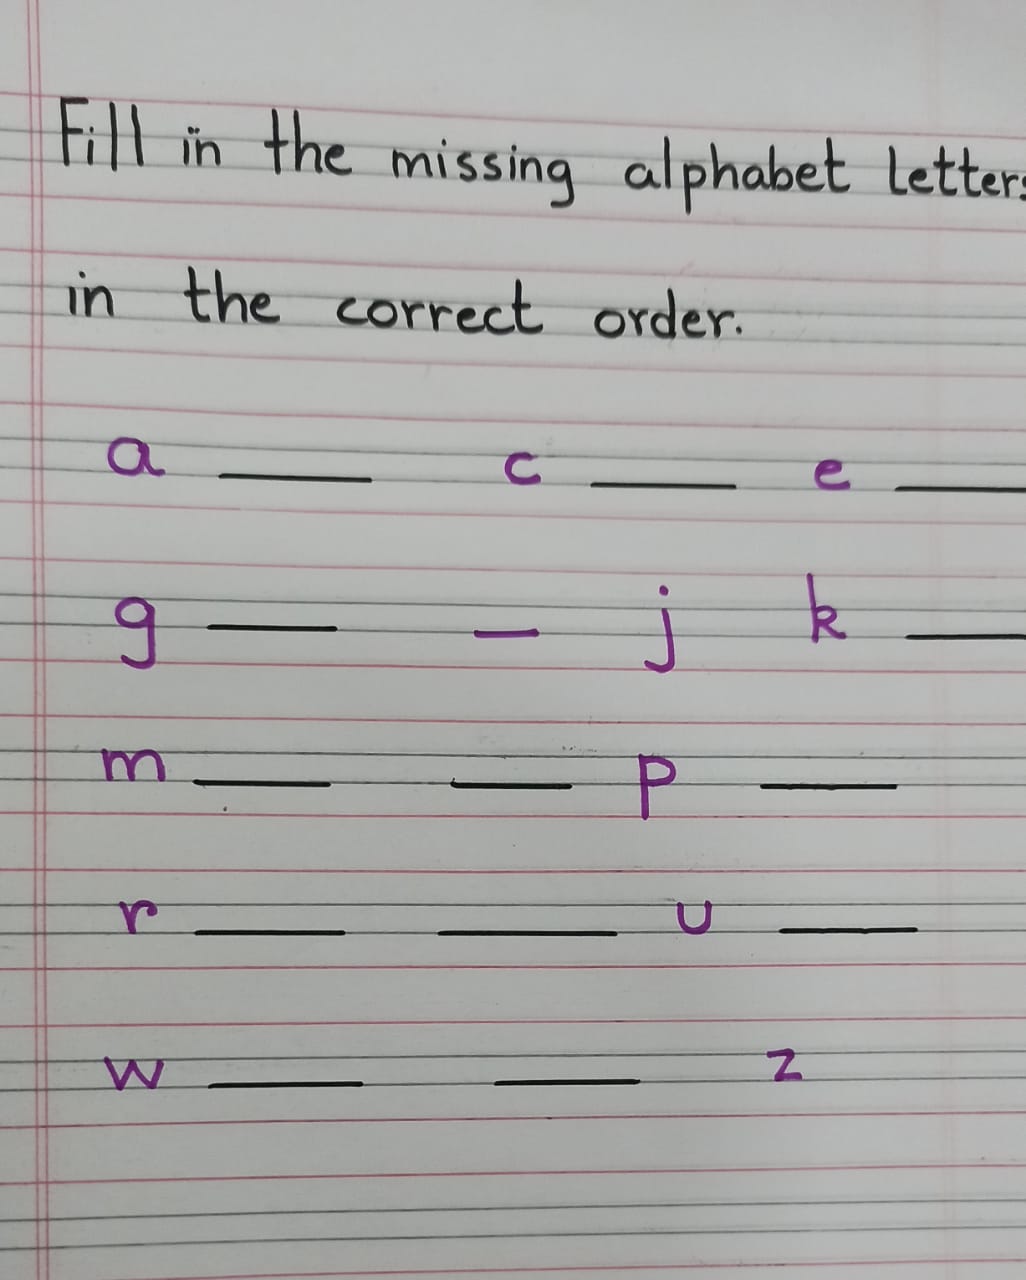 Fill in the missing alphabet letters
in the correct order.
a ___ c ___ e ___
g ___ _ j k ___
m ___ ___ p ___
r ___ ___ u ___
w ___ ___ z